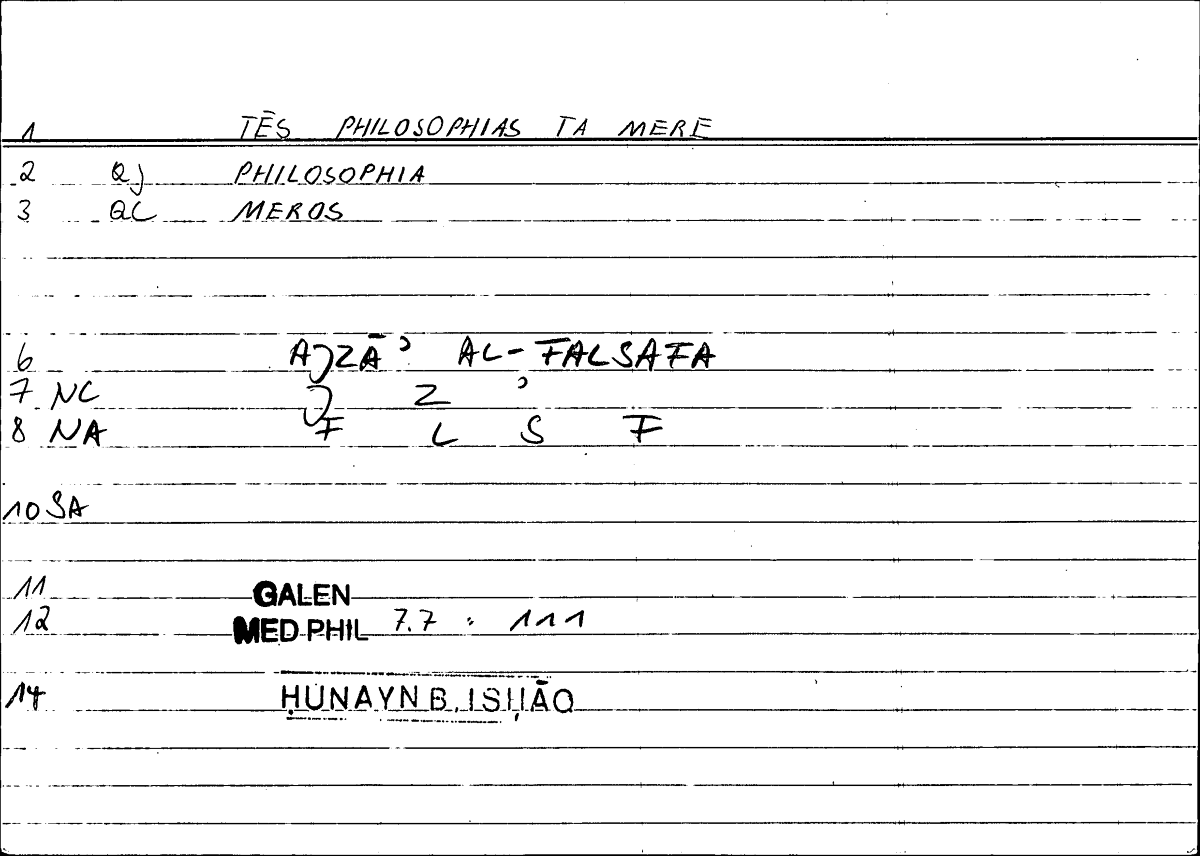 1 TĒS PHILOSOPHIAS TA MERE
2 QJ PHILOSOPHIA
3 QC MEROS
6 AJZĀʾ AL-FALSAFA
7 NC J Z ʾ
8 NA F L S F
10 SA
11 GALEN
12 MED PHIL 7.7 : 111
14 ḤUNAYN B. ISḤĀQ